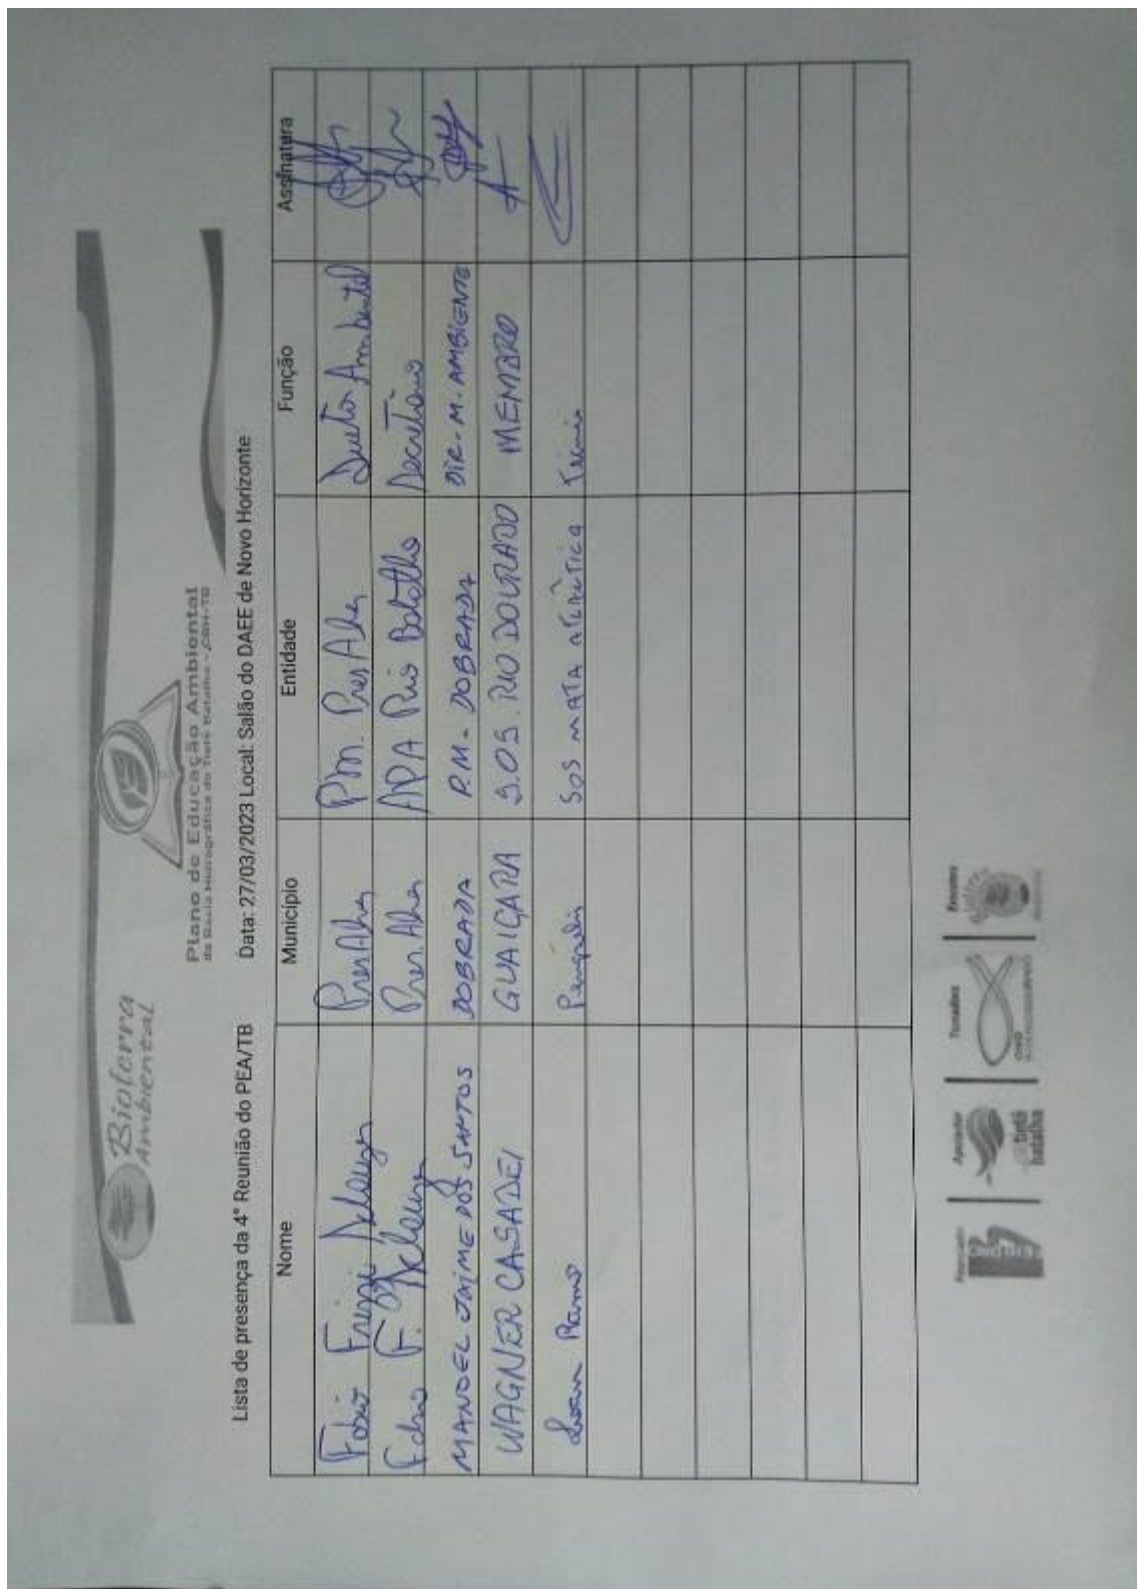 Bioterra
Ambiental
Plano de Educação Ambiental
da Bacia Hidrográfica do Tietê Batalha - CBH-TB
Lista de presença da 4° Reunião do PEA/TB Data: 27/03/2023 Local: Salão do DAEE de Novo Horizonte
Nome Município Entidade Função Assinatura
Fabio Pres Alves P.m. Pres Alves Diretor Ambiental
Fabio F. Pres. Alves APA Rio Batalha Secretario
MANOEL JAIME DOS SANTOS DOBRADA P.M. DOBRADA DIR. M. AMBIENTE
WAGNER CASADEI GUAIÇARA S.O.S. RIO DOURADO MEMBRO
Ramos Penápolis SOS MATA ATLÂNTICA Técnico
Apoiador Tomadora Executora
FEHIDRO
tietê
batalha